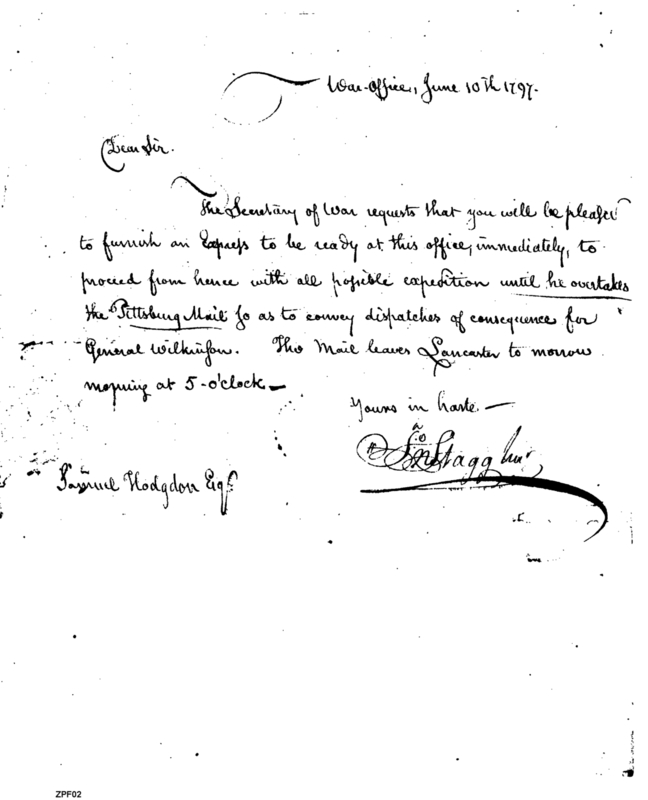 War-office, June 10th 1797.
Dear Sir.
The Secretary of War requests that you will be pleased
to furnish an Express to be ready at this office, immediately, to
proceed from hence with all possible expedition until he overtakes
the Pittsburg Mail so as to convey dispatches of consequence for
General Wilkinson. The Mail leaves Lancaster to morrow
morning at 5-o'clock—
Yours in haste —
Jno Stagg Junr
Samuel Hodgdon Esqr
ZPF02